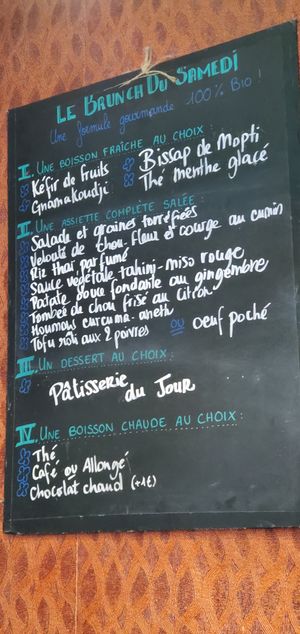 LE BRUNCH DU SAMEDI
Une formule gourmande 100% BIO !
I. UNE BOISSON FRAÎCHE AU CHOIX :
Kéfir de fruits
Bissap de Mopti
Gnamakoudji
Thé menthe glacé
II. UNE ASSIETTE COMPLÈTE SALÉE :
Salade et graines torréfiées
Velouté de chou-fleur et courge au cumin
Riz thaï parfumé
Sauce végétale tahini-miso rouge
Patate douce fondante au gingembre
Tombée de chou frisé au citron
Houmous curcuma-aneth
Tofu rôti aux 2 poivres ou oeuf poché
III. UN DESSERT AU CHOIX :
Pâtisserie du Jour
IV. UNE BOISSON CHAUDE AU CHOIX :
Thé
Café ou Allongé
Chocolat chaud (+1€)